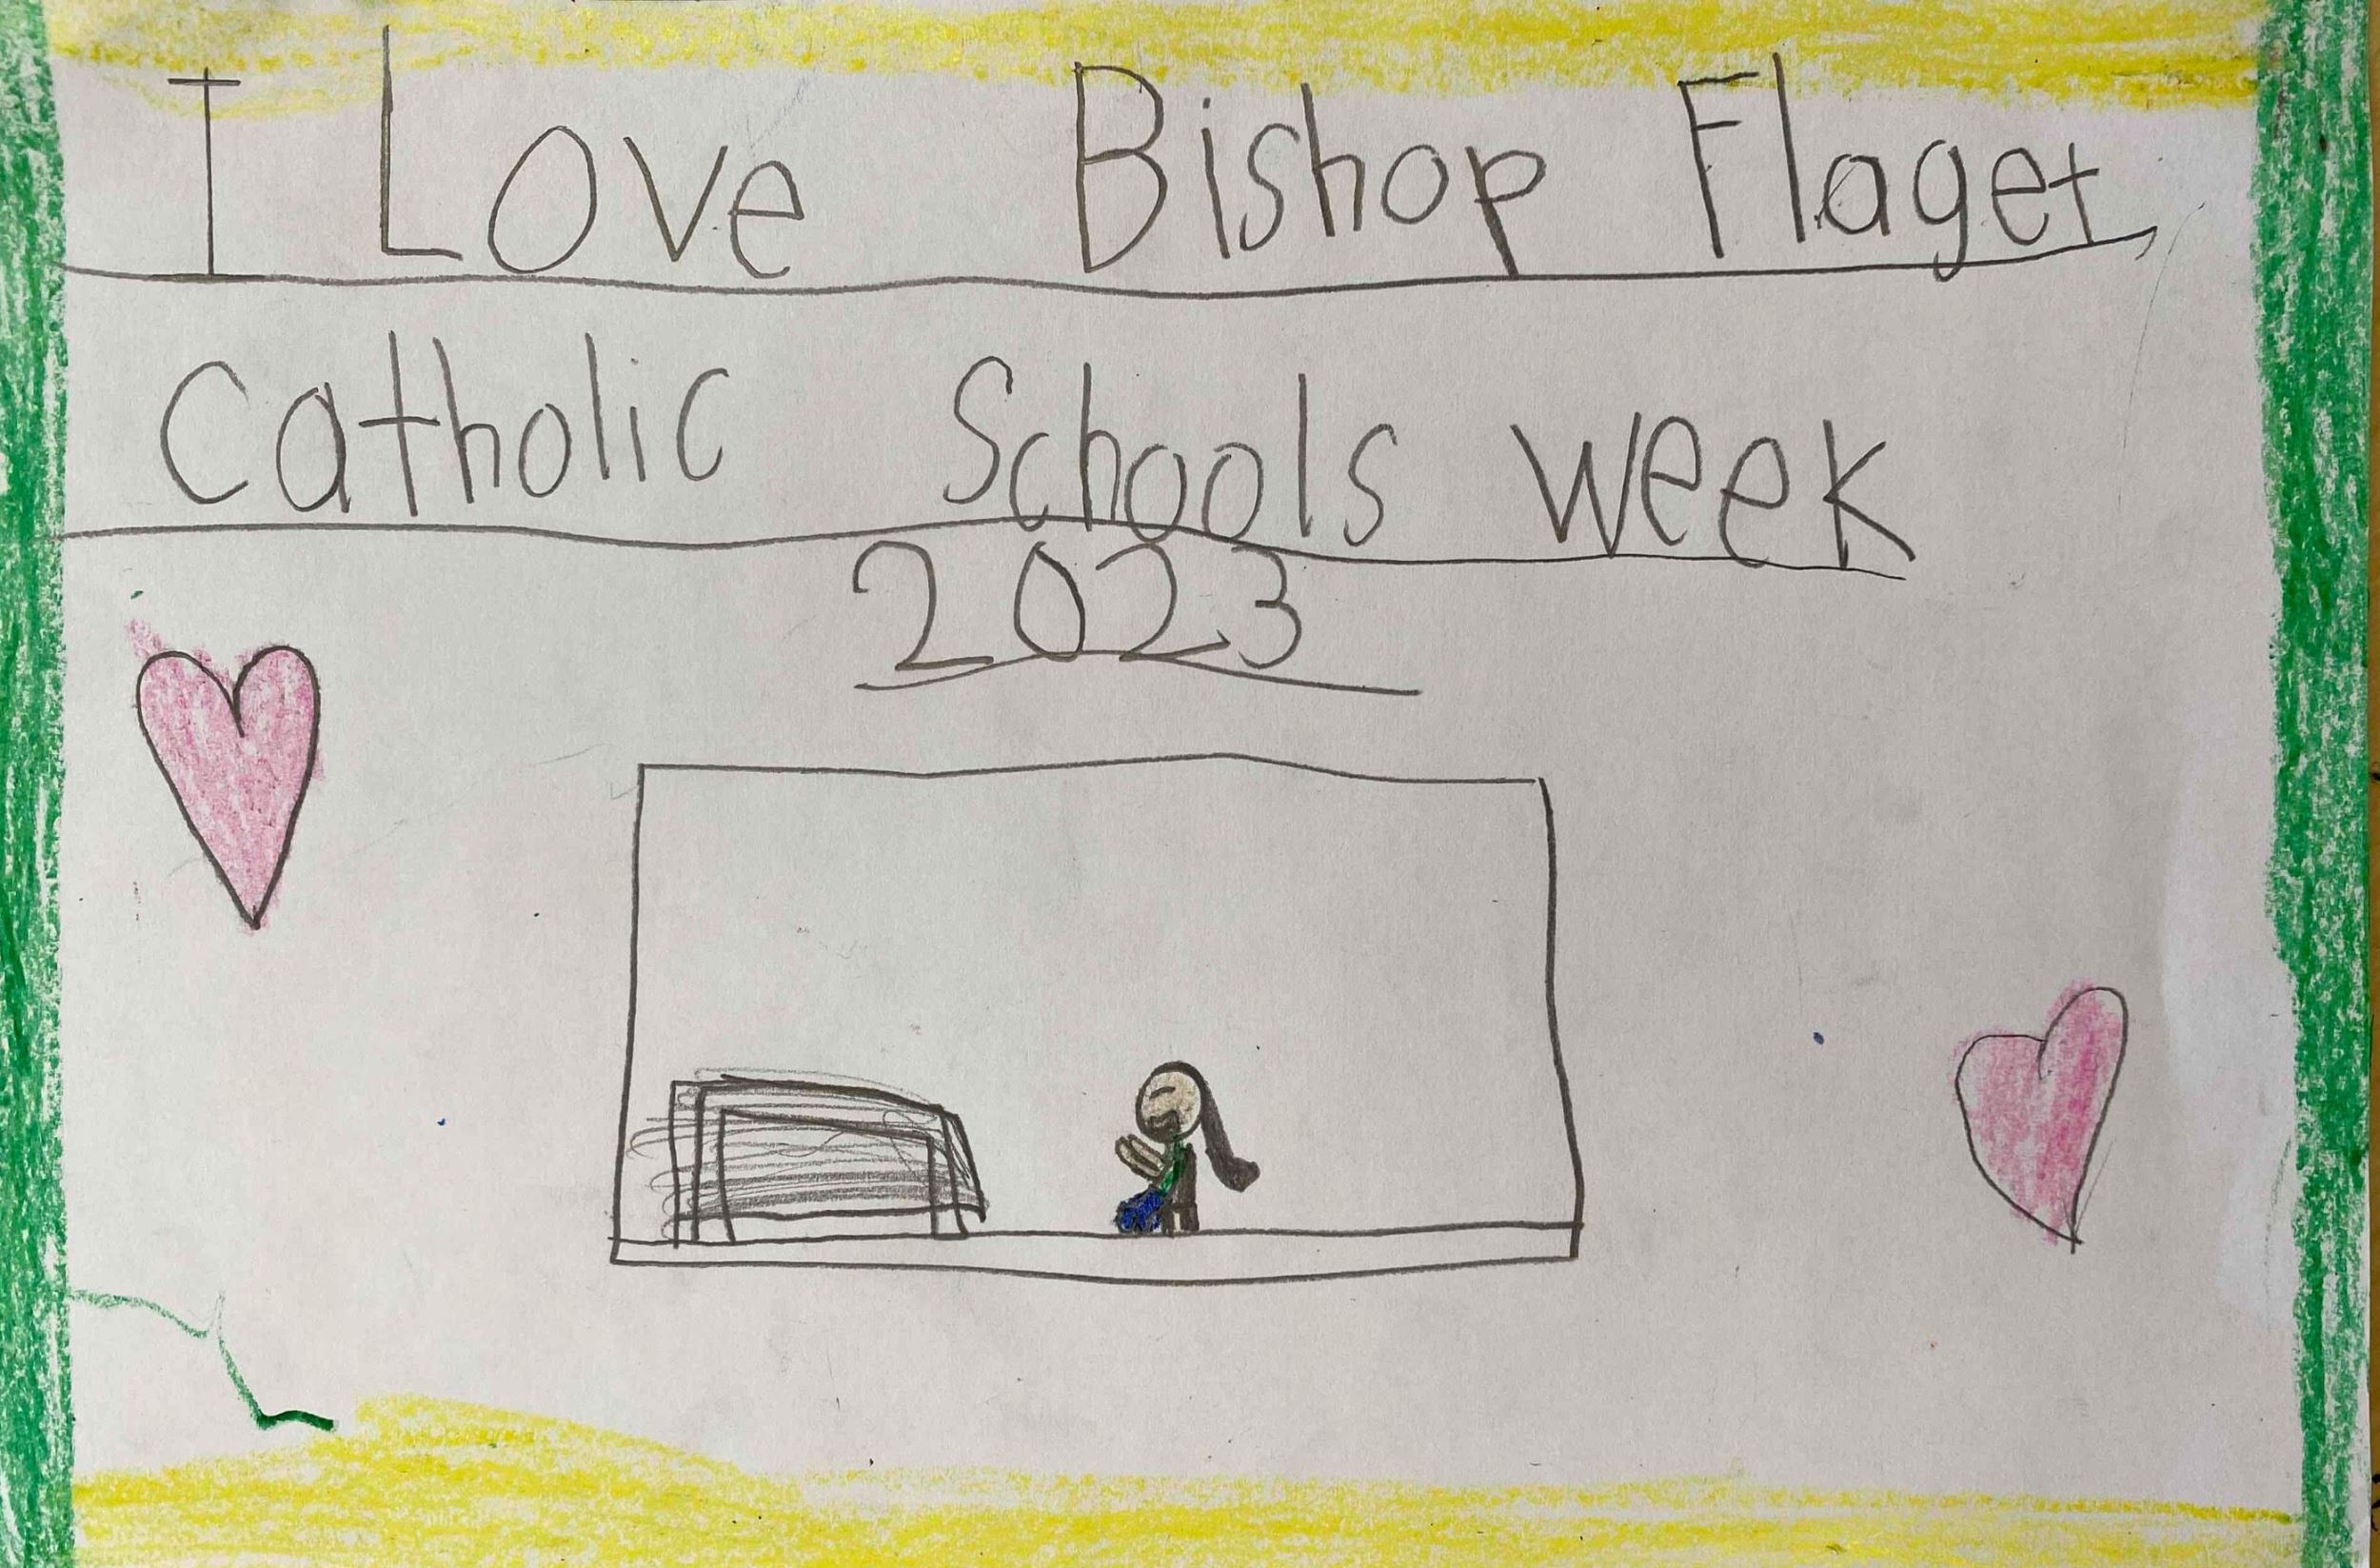 I Love Bishop Flaget
Catholic Schools week
2023